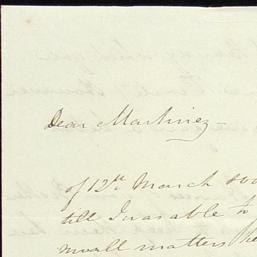 Dear Martinez -
of 12th March
till I was able to
small matters he